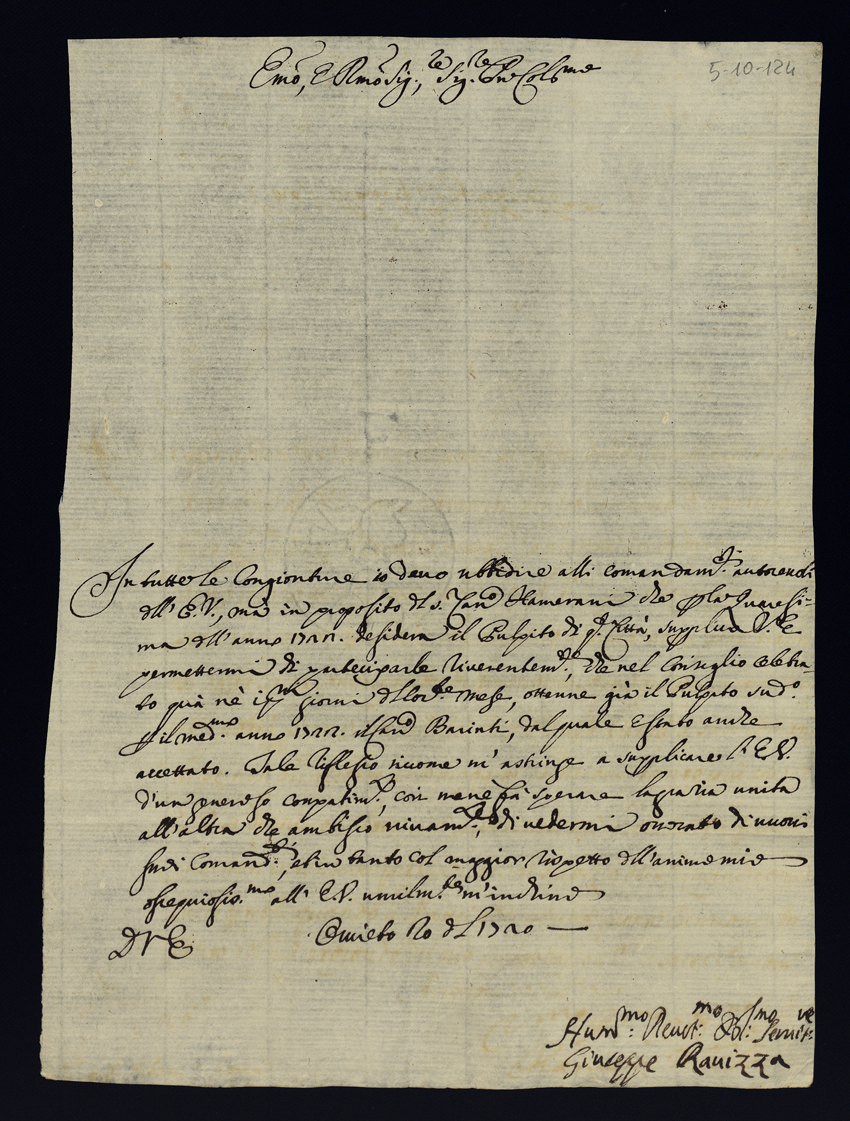 Emo, e Rmo Sig.re, Sig.re Pne Colmo
5-10-124
In tutte le Congionture io devo ubbidire alli comandam.ti autorevoli
dell' E.V., mà in proposito del s. Hamerani che p la Quaresi=
ma dell'anno 1722. desidera il Pulpito di q.ta Città, supplico V.E.
permettermi di parteciparle riverentem.te, che nel Consiglio celebra-
to quà nè giorni del mese, ottenne già il Pulpito sud.o
p il med.mo anno 1722. il Barinti, dal quale è stato anche
accettato. Tale riflesso m'astringe a supplicare l'E.V.
d'un generoso compatim.to, con sperare la grazia unita
all'altra che ambisco vivam.te, di vedermi onorato di nuovi
suoi Comand.ti, et in tanto col maggior rispetto dell'anime mie
ossequiosis.mo all' E.V. umilm.te m'inchino
D V E. Orvieto 20 1720
Hum.mo Devot.mo Obl.mo Servit.re
Giuseppe Ravizza